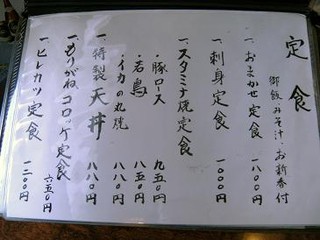 定食
御飯・みそ汁・お新香付
一、おまかせ定食 一八〇〇円
一、刺身定食 一〇〇〇円
一、スタミナ焼定食
・豚ロース 九五〇円
・若鳥 八五〇円
・イカの丸焼 八八〇円
一、特製天丼 八八〇円
一、もりがねコロッケ定食 六五〇円
一、ヒレカツ定食 一二〇〇円